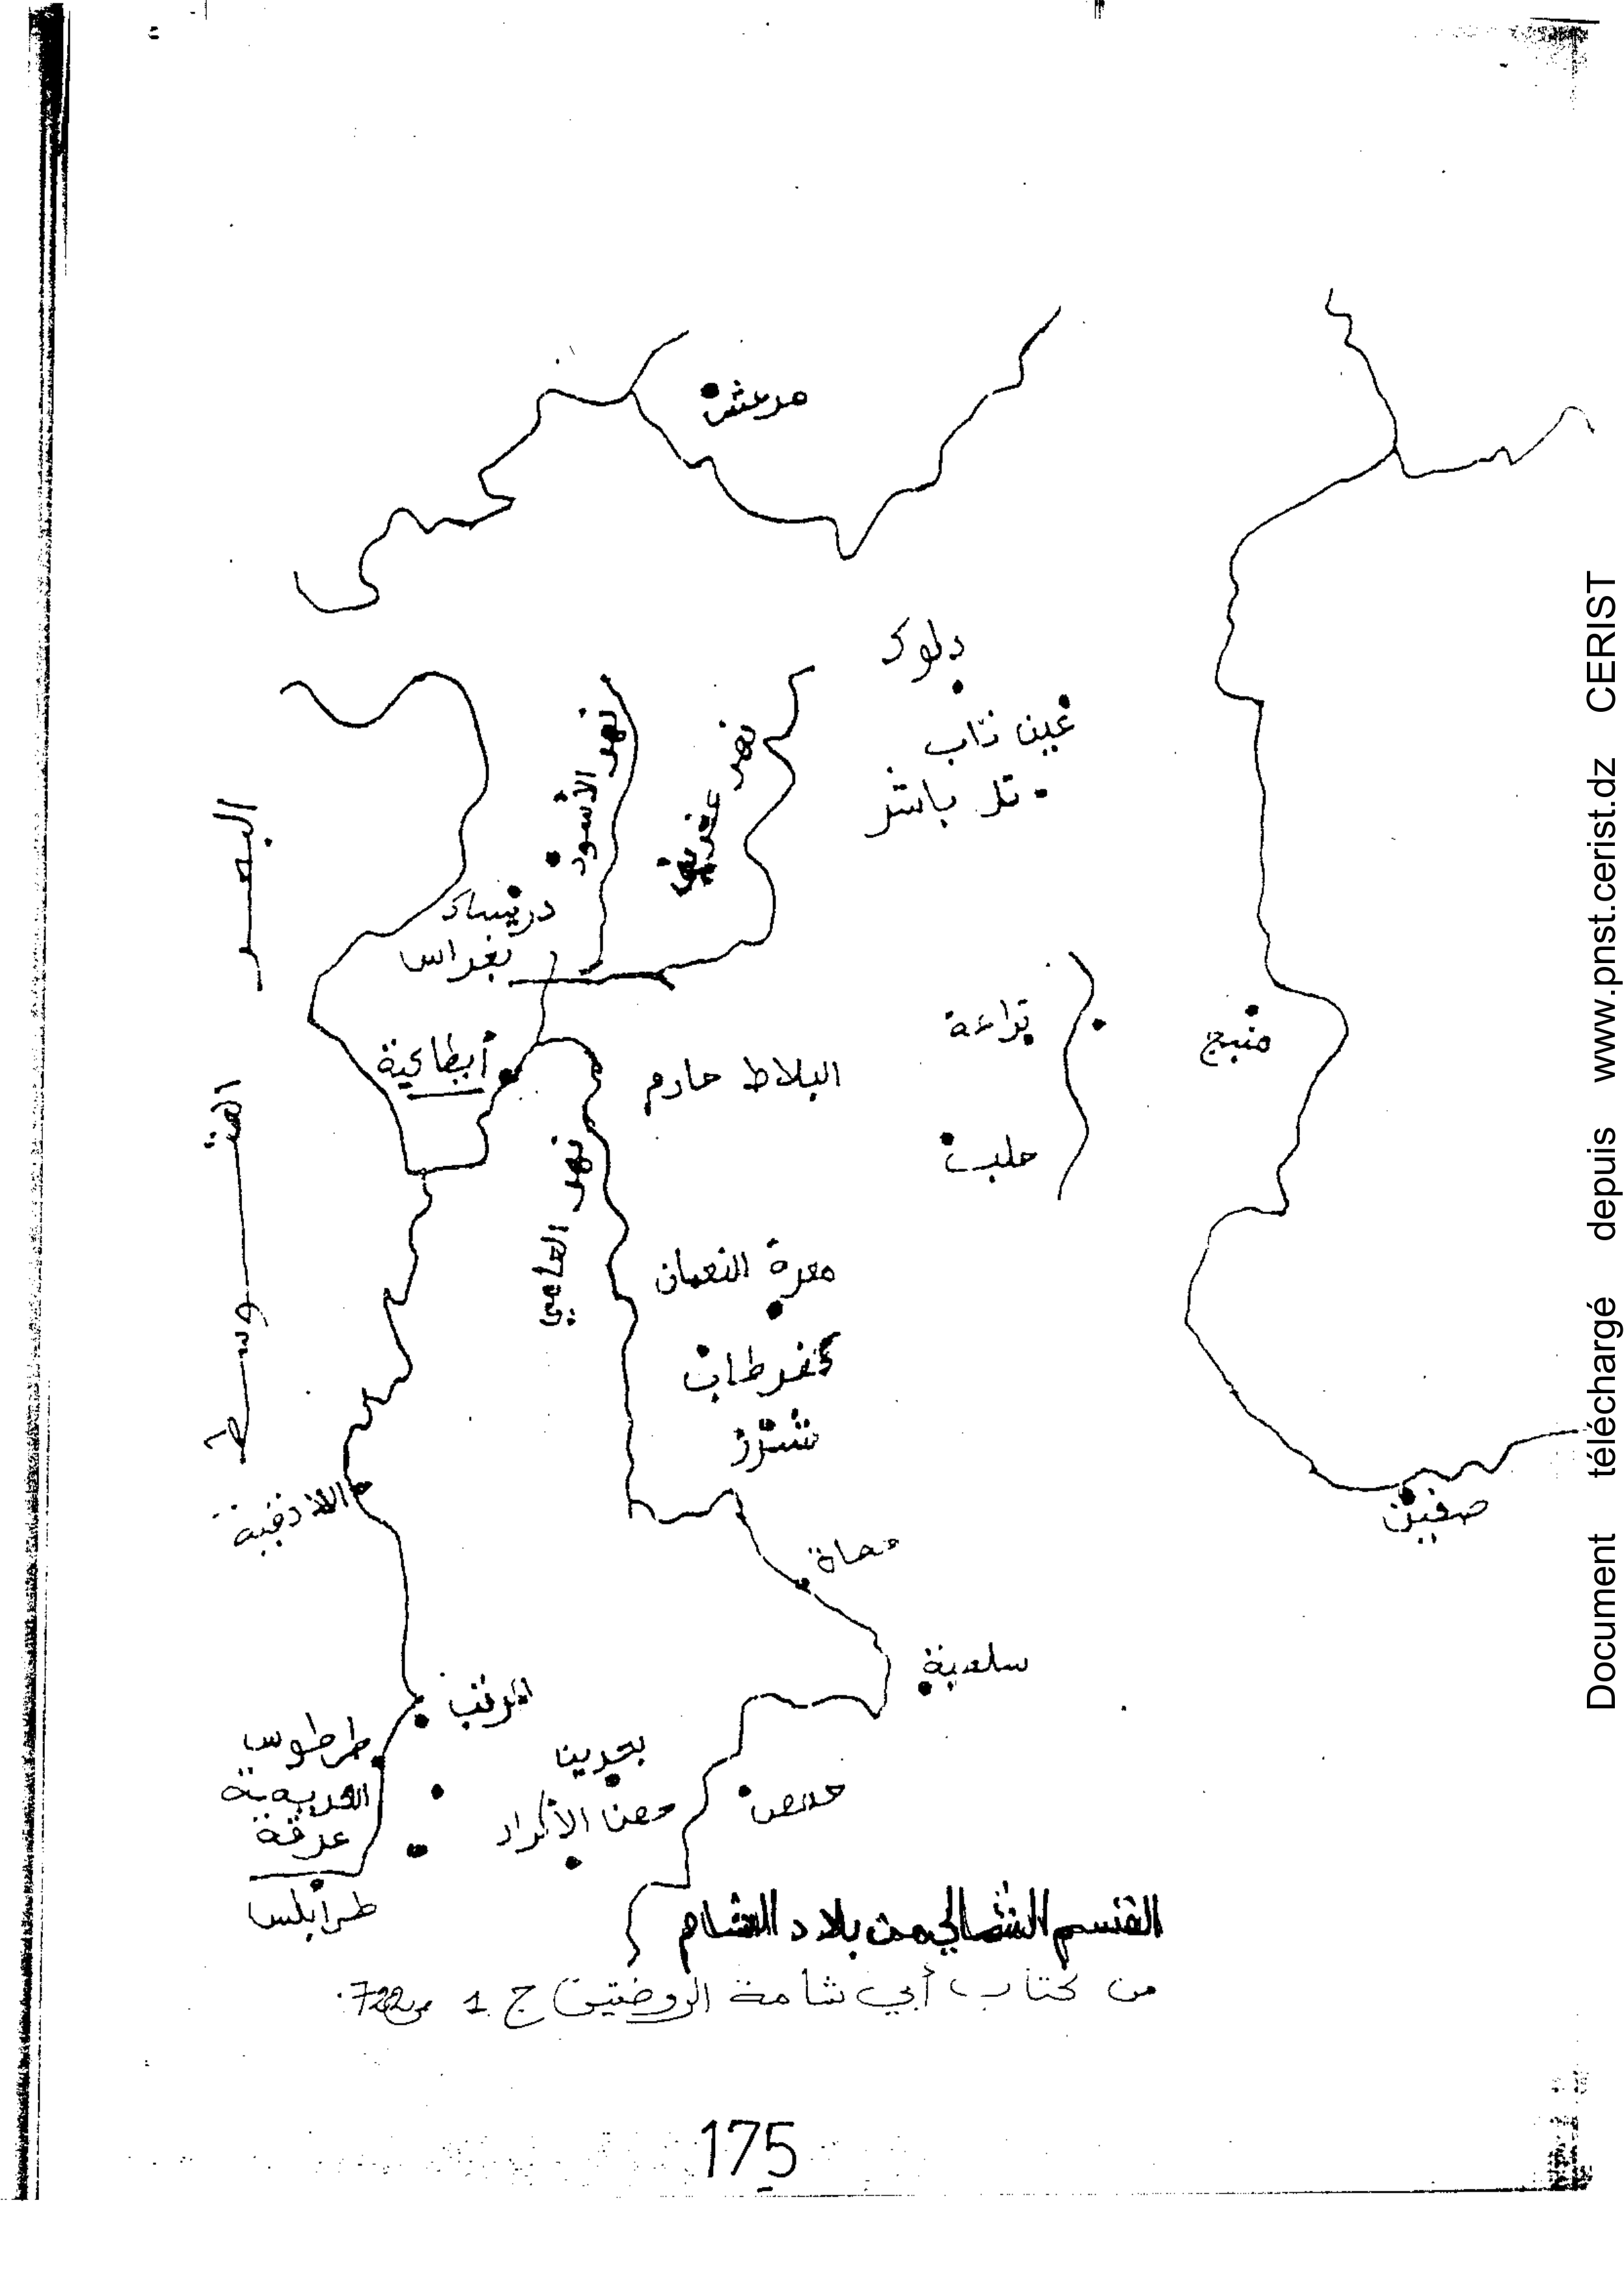 مرعش
دلوك
عين تاب
تل باشر
نهر الأسود
نهر عفرين
البحر
المتوسط
دربساك
بغراس
أنطاكية
البلاط حارم
بزاعة
منبج
حلب
نهر العاصي
معرة النعمان
كفر طاب
شيزر
اللاذقية
حماة
صفين
سلمية
المرقب
طرطوس
العريمة
عرقة
طرابلس
بعرين
حصن الأكراد
حمص
القسم الشمالي من بلاد الشام
من كتاب أبي شامة الروضتين ج 1 ص 722.
175
Document téléchargé depuis www.pnst.cerist.dz CERIST